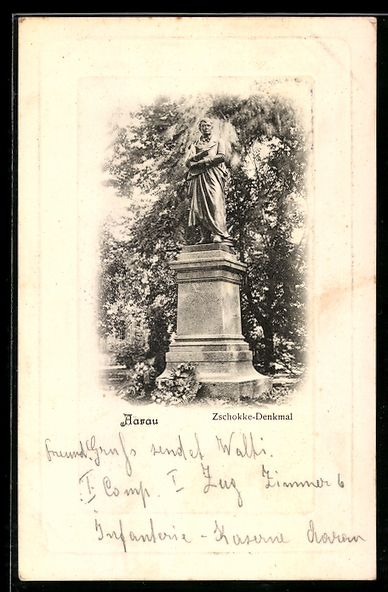 Aarau
Zschokke-Denkmal
Freundl Gruss sendet Walti.
I Comp. I Zug Zimmer 6
Infanterie - Kaserne Aarau